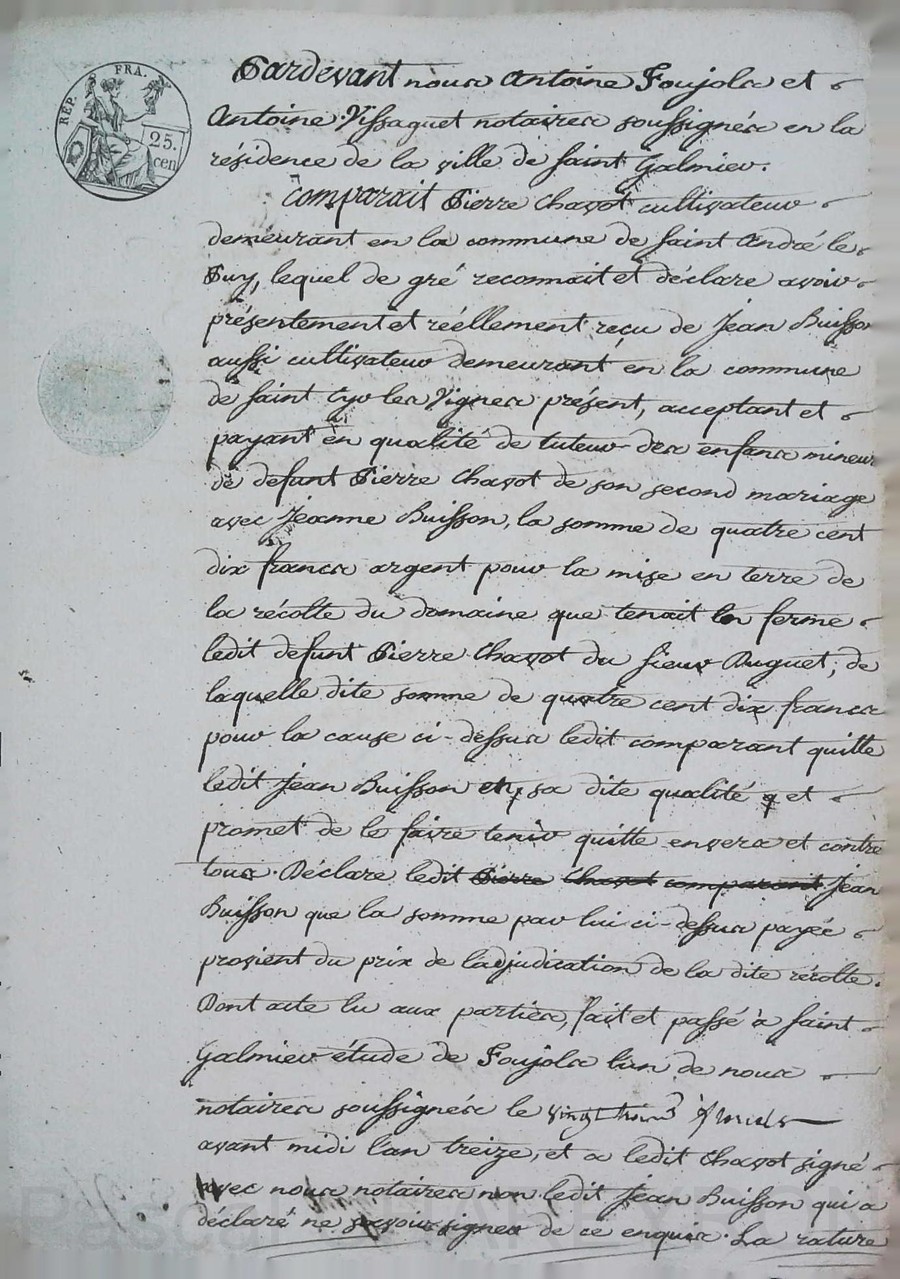 RÉP. FRA.
25.
cen
Pardevant nous Antoine Foujols et
Antoine Vissaguet notaires soussignés en la
résidence de la ville de saint Galmier.
Comparait Pierre Chavot cultivateur
demeurant en la commune de saint André le
Puy, lequel de gré reconnait et déclare avoir
présentement et réellement reçu de Jean Buisson
aussi cultivateur demeurant en la commune
de saint Cyr les Vignes présent, acceptant et
payant en qualité de tuteur des enfans mineurs
de défunt Pierre Chavot de son second mariage
avec Jeanne Buisson, la somme de quatre cent
dix francs argent pour la mise en terre de
la récolte du domaine que tenait en ferme
ledit defunt Pierre Chavot du sieur Duguet; de
laquelle dite somme de quatre cent dix francs
pour la cause ci-dessus ledit comparant quitte
ledit Jean Buisson en sa dite qualité et
promet de le faire tenir quitte envers et contre
tous. Déclare ledit Pierre Chavot comparant Jean
Buisson que la somme par lui ci-dessus payée
provient du prix de l'adjudication de la dite récolte.
Dont acte lu aux parties, fait et passé à saint
Galmier étude de Foujols l'un de nous
notaires soussignés le vingt trois
avant midi l'an treize, et a ledit Chavot signé
avec nous notaires non ledit Jean Buisson qui a
déclaré ne savoir signer de ce enquis. La rature